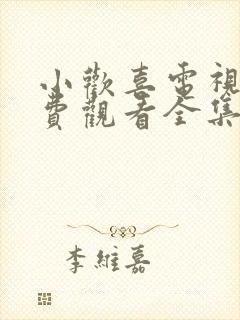 小歡喜電視
費觀看全集
李維嘉